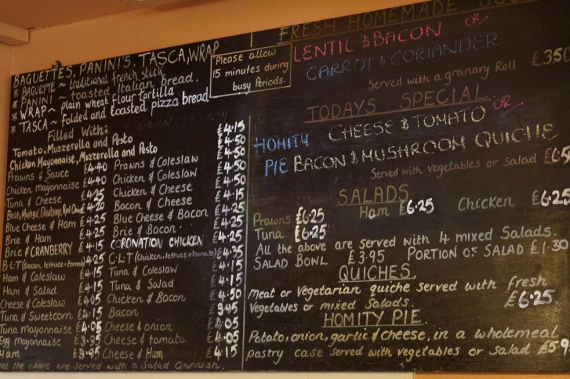 BAGUETTES, PANINI'S, TASCA, WRAP
* BAGUETTE ~ traditional french stick
* PANINI ~ toasted Italian bread.
* WRAP ~ plain wheat flour tortilla
* TASCA ~ Folded and toasted pizza bread
Filled With:
Tomato, Mozzerella and Pesto £4.15
Chicken Mayonnaise, Mozzerella and Pesto £4.50
Prawns & Sauce £4.40 Prawns & Coleslaw £4.50
Chicken mayonnaise £4.40 Chicken & Coleslaw
Tuna & Cheese £4.25 Chicken & Cheese
Bacon & Cheese
Blue Cheese & Ham £4.25 Blue Cheese & Bacon
Brie & Ham £4.25 Brie & Bacon
Brie & CRANBERRY £4.15 CORONATION CHICKEN
B·L·T C·L·T £4.35
Ham & Coleslaw £4.15 Tuna & Coleslaw £4.15
Ham & Salad £4.10 Tuna & Salad £4.15
Cheese & Coleslaw £4.05 Chicken & Bacon £4.50
Tuna & Sweetcorn £4.15 Bacon £3.95
Tuna mayonnaise £4.05 Cheese & onion £4.05
Egg mayonnaise £3.95 Cheese & tomato £4.05
Ham £3.95 Cheese & Ham £4.15
all the above are served with a Salad Garnish.
Please allow
15 minutes during
busy Periods.
FRESH HOMEMADE
LENTIL & BACON OR
CARROT & CORIANDER £3.50
Served with a granary Roll
TODAYS SPECIAL
CHEESE & TOMATO OR
HOMITY
PIE BACON & MUSHROOM QUICHE
Served with vegetables or Salad
SALADS
Prawns £6.25 Ham £6.25 Chicken £6.25
Tuna £6.25
All the above are served with 4 mixed Salads.
SALAD BOWL £3.95 PORTION OF SALAD £1.30
QUICHES.
Meat or Vegetarian quiche served with fresh
Vegetables or mixed Salads. £6.25
HOMITY PIE.
Potato, onion, garlic & cheese, in a wholemeal
pastry case served with vegetables or Salad